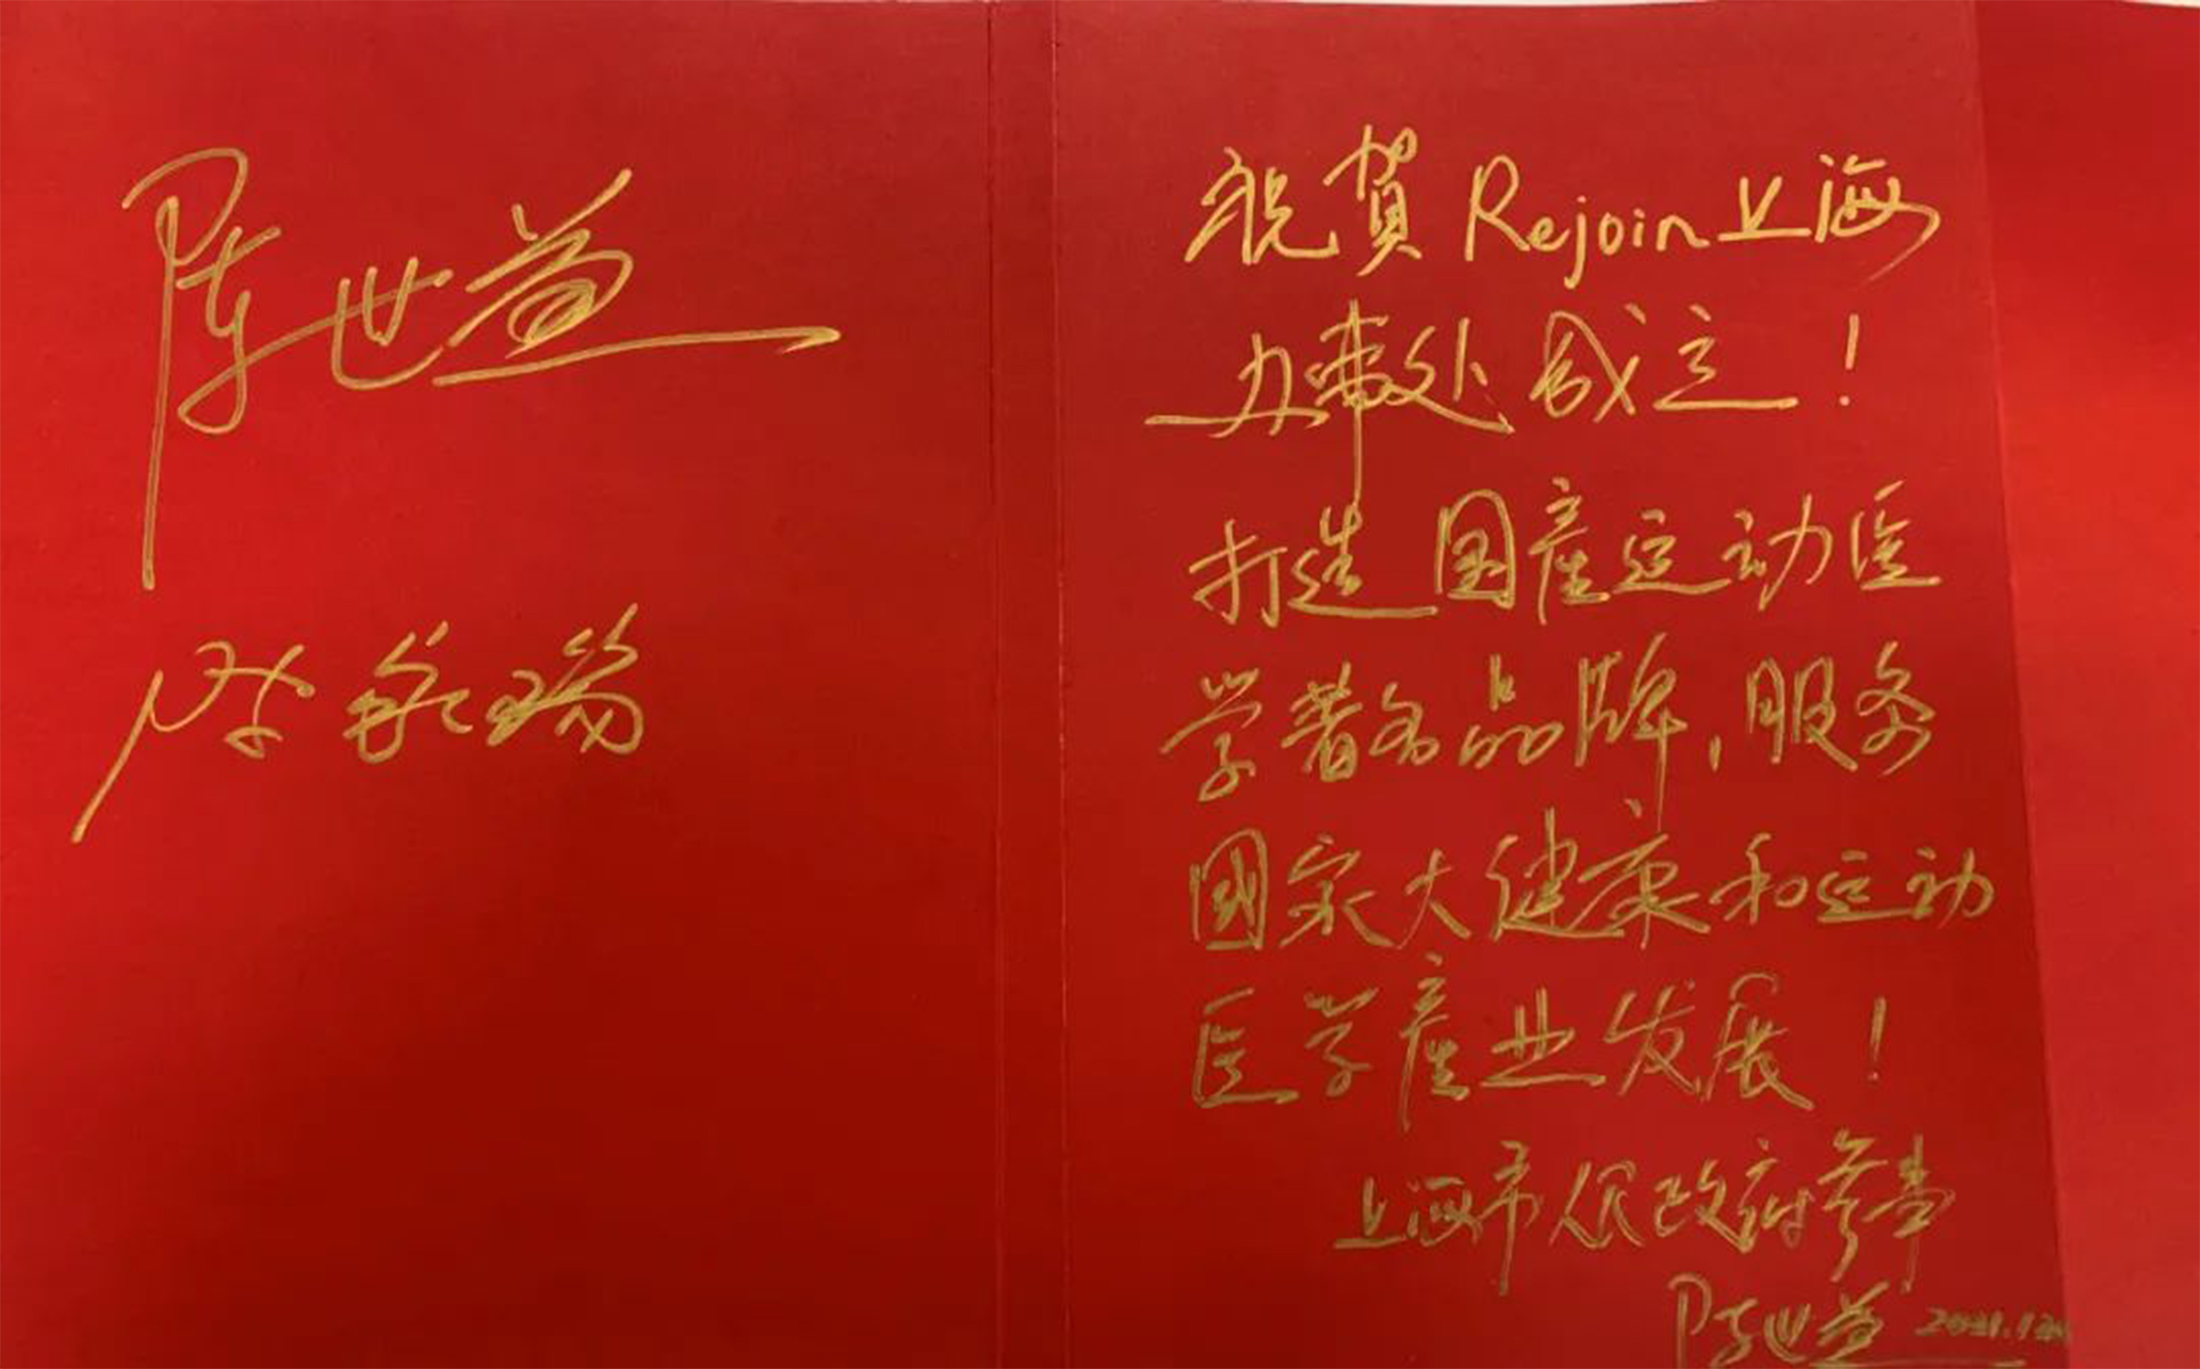 陈世益
祝賀Rejoin上海
办事处成立！
打造国産运动医
学著名品牌,服务
國家大健康和运动
医学産业发展！
上海市人民政府参事
陈世益 2021.12